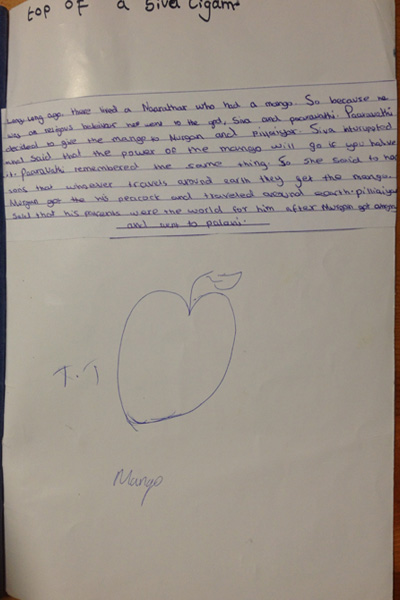 top of a Siva Ligam
Long long ago there lived a Naarathar who had a mango. So because he
was a religous behaiver he went to the god, Siva and paaravathi. Paaravathi
decided to give the mango to Murgan and Piyaiyar. Siva inturupted
and said that the power of the mango will go if you halve
it. Paaravathi remembered the same thing. So she said to her
sons that whoever travels around earth they get the mango.
Murgan got the his peacock and traveled around earth. pilliaiyar
said that his parents were the world for him after Murgan got angry
and went to palani.
T.T
Mango